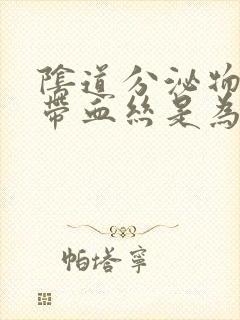 陰道分泌物
帶血絲是為
帕塔寧